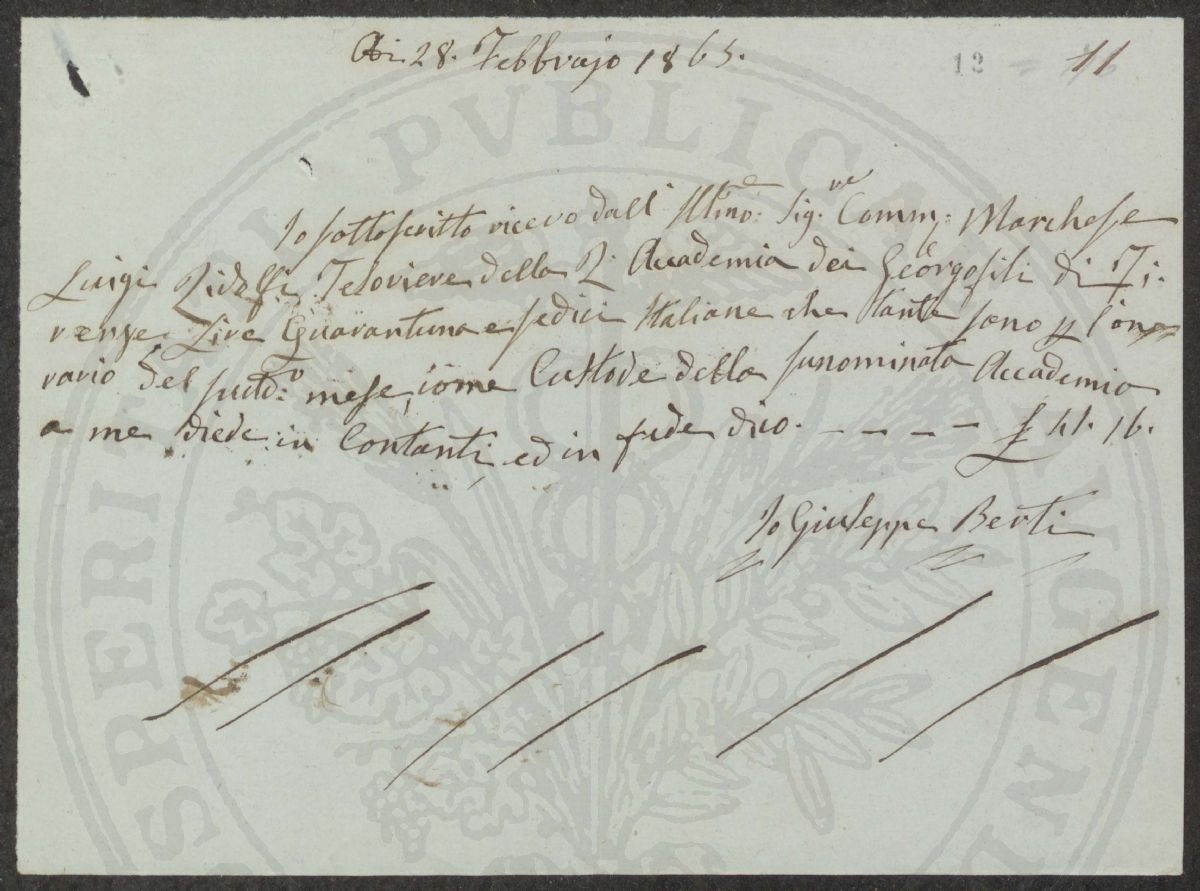 Adi 28. Febbrajo 1865.
12 11
Io sottoscritto ricevo dall' Illmo: Sig.re Comm: Marchese
Luigi Ridolfi Tesoriere della R: Accademia dei Georgofili di Fi-
renze Lire Quarantuna e sedici Italiane che tante sono p l'ono-
rario del sudd:o mese, come Custode della sunominata Accademia
a me diede in Contanti, ed in fede dico. - - - - - £ 41. 16.
Io Giuseppe Berti
PROSPERITATI PUBLICAE AUGENDAE